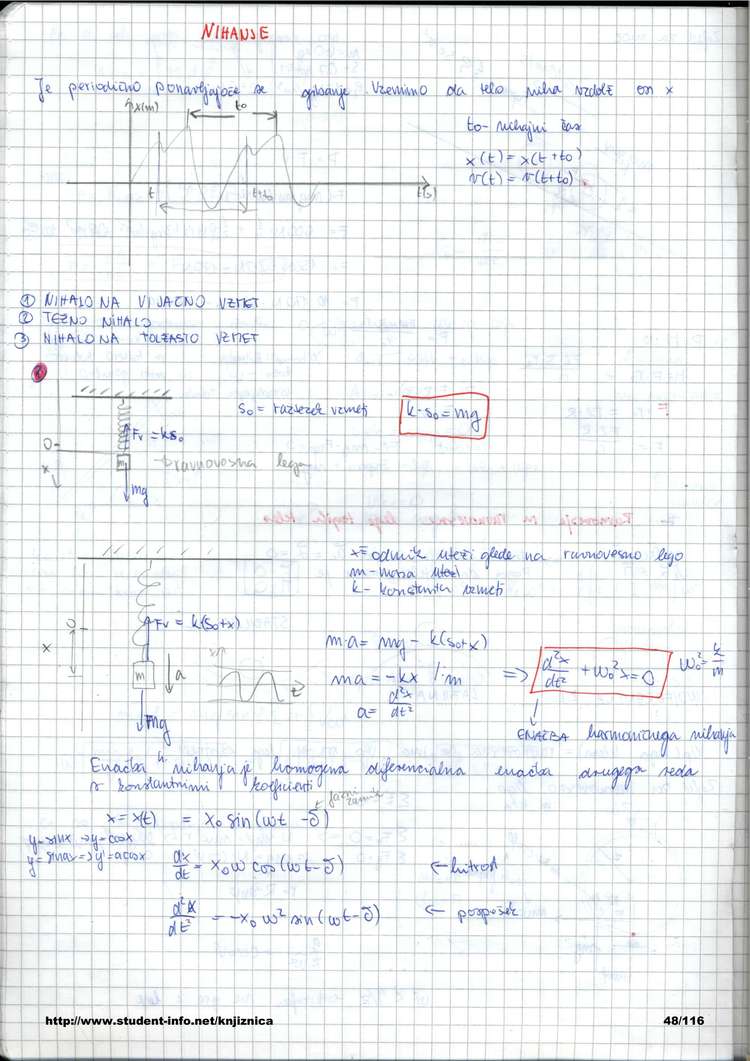 NIHANJE
Je periodično ponavljajoče se gibanje Vzemimo da telo niha vzdolž osi x
x(m)
t0
t0- nihajni čas
x(t) = x(t+t0)
v(t) = v(t+t0)
t
t+t0
t(s)
① NIHALO NA VIJAČNO VZMET
② TEŽNO NIHALO
③ NIHALO NA POLŽASTO VZMET
s0 = raztezek vzmeti
k·s0 = mg
Fv = ks0
0
x
m
ravnovesna lega
mg
x = odmik uteži glede na ravnovesno lego
m - masa uteži
k - konstanta vzmeti
0
Fv = k(s0+x)
x
m
a
t
mg
m·a = mg - k(s0+x)
ma = -kx /:m
a = d²x/dt²
=> d²x/dt² + ω0²x = 0
ω0² = k/m
ENAČBA harmoničnega nihanja
Enačba h nihanja je homogena diferencialna enačba drugega reda
s konstantnimi koeficienti
fazni zamik
x = x(t) = x0 sin(ωt - δ)
y = sinx => y = cosx
y = sinax => y' = a cosx
dx/dt = x0 ω cos(ωt - δ) ← hitrost
d²x/dt² = -x0 ω² sin(ωt - δ) ← pospešek
http://www.student-info.net/knjiznica
48/116